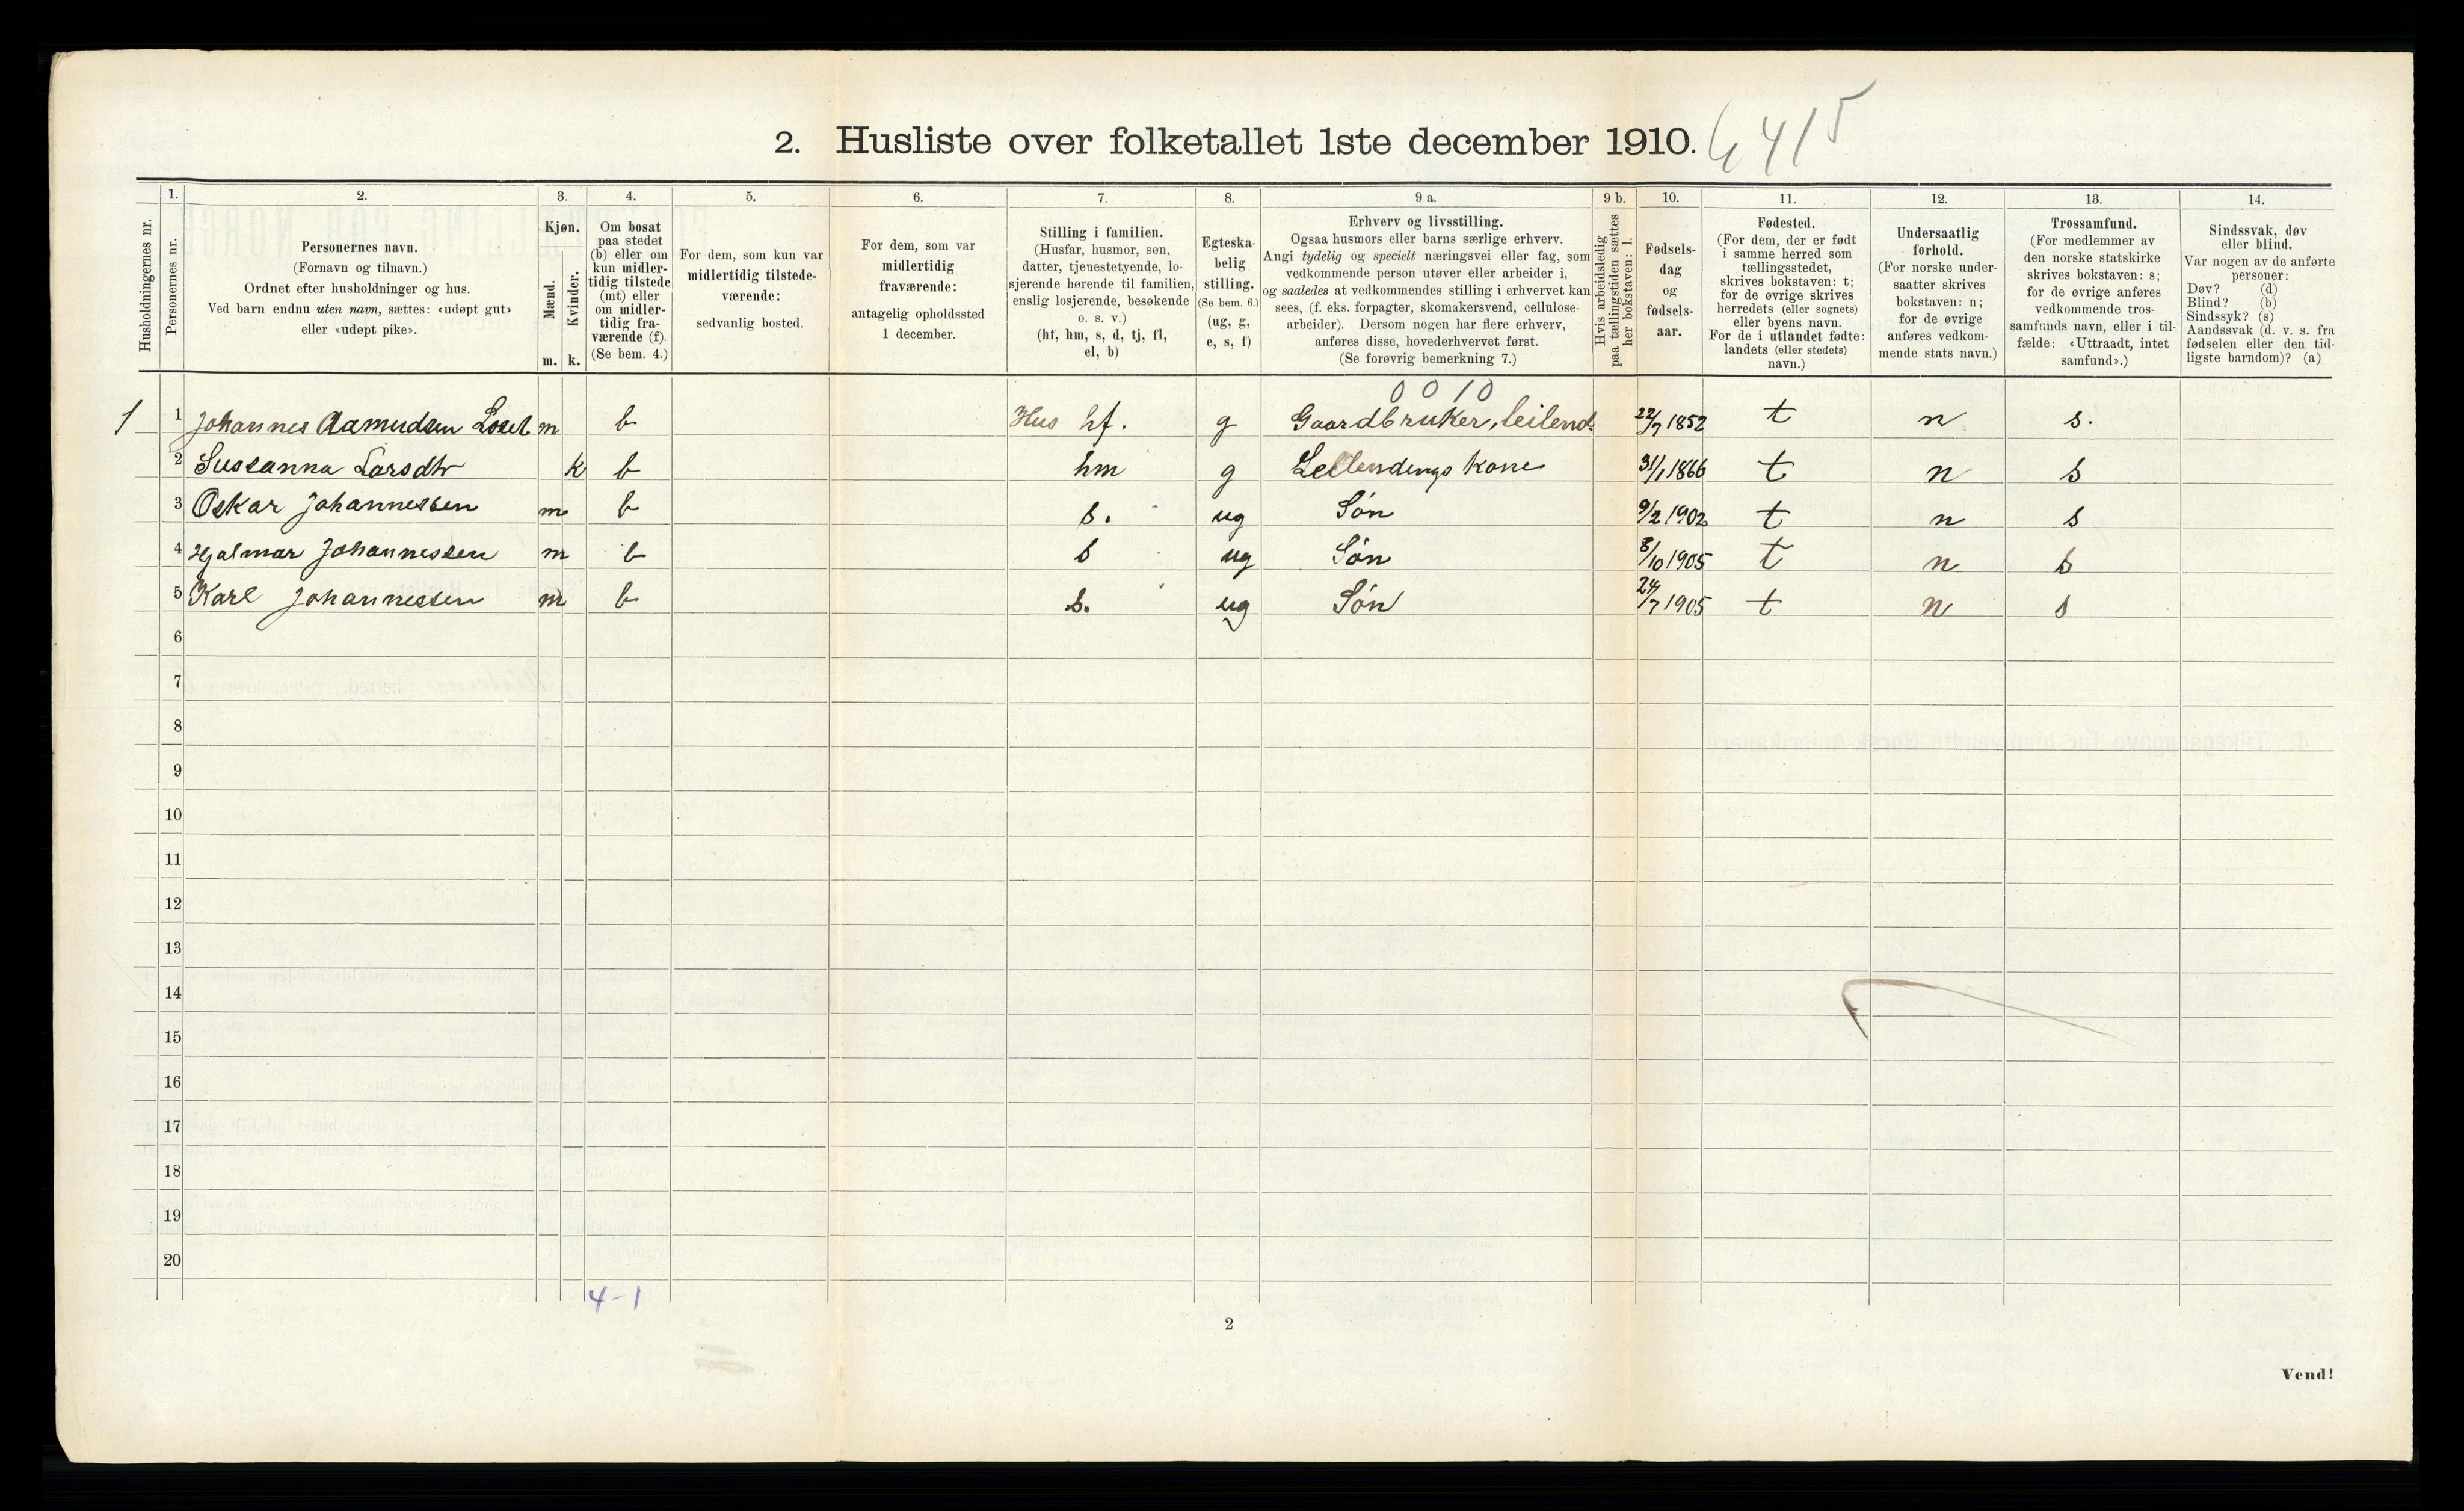 2. Husliste over folketallet 1ste december 1910.
6415
Husholdningernes nr.
1.
Personernes nr.
2.
Personernes navn.
(Fornavn og tilnavn.)
Ordnet efter husholdninger og hus.
Ved barn endnu uten navn, sættes: «udøpt gut»
eller «udøpt pike».
3.
Kjøn.
Mænd.
Kvinder.
m. k.
4.
Om bosat
paa stedet
(b) eller om
kun midler-
tidig tilstede
(mt) eller
om midler-
tidig fra-
værende (f).
(Se bem. 4.)
5.
For dem, som kun var
midlertidig tilstede-
værende:
sedvanlig bosted.
6.
For dem, som var
midlertidig
fraværende:
antagelig opholdssted
1 december.
7.
Stilling i familien.
(Husfar, husmor, søn,
datter, tjenestetyende, lo-
sjerende hørende til familien,
enslig losjerende, besøkende
o. s. v.)
(hf, hm, s, d, tj, fl,
el, b)
8.
Egteska-
belig
stilling.
(Se bem. 6.)
(ug, g,
e, s, f)
9 a.
Erhverv og livsstilling.
Ogsaa husmors eller barns særlige erhverv.
Angi tydelig og specielt næringsvei eller fag, som
vedkommende person utøver eller arbeider i,
og saaledes at vedkommendes stilling i erhvervet kan
sees, (f. eks. forpagter, skomakersvend, cellulose-
arbeider). Dersom nogen har flere erhverv,
anføres disse, hovederhvervet først.
(Se forøvrig bemerkning 7.)
9 b.
Hvis arbeidsledig
paa tællingstiden sættes
her bokstaven: l.
10.
Fødsels-
dag
og
fødsels-
aar.
11.
Fødested.
(For dem, der er født
i samme herred som
tællingsstedet,
skrives bokstaven: t;
for de øvrige skrives
herredets (eller sognets)
eller byens navn.
For de i utlandet fødte:
landets (eller stedets)
navn.)
12.
Undersaatlig
forhold.
(For norske under-
saatter skrives
bokstaven: n;
for de øvrige
anføres vedkom-
mende stats navn.)
13.
Trossamfund.
(For medlemmer av
den norske statskirke
skrives bokstaven: s;
for de øvrige anføres
vedkommende tros-
samfunds navn, eller i til-
fælde: «Uttraadt, intet
samfund».)
14.
Sindssvak, døv
eller blind.
Var nogen av de anførte
personer:
Døv? (d)
Blind? (b)
Sindssyk? (s)
Aandssvak (d. v. s. fra
fødselen eller den tid-
ligste barndom)? (a)
0 0 1 0
1 1 Johannes Aamudsen m b Hus hf. g Gaardbruker, leilend. 22/7 1852 t n s.
2 Susanna Larsdtr k b hm g Leilendings kone 31/1 1866 t n s
3 Oskar Johannessen m b s. ug Søn 9/2 1902 t n s
4 Hjalmar Johannessen m b s ug Søn 8/10 1905 t n s
5 Karl Johannessen m b s. ug Søn 24/7 1905 t n s
6
7
8
9
10
11
12
13
14
15
16
17
18
19
20
4-1
2
Vend!